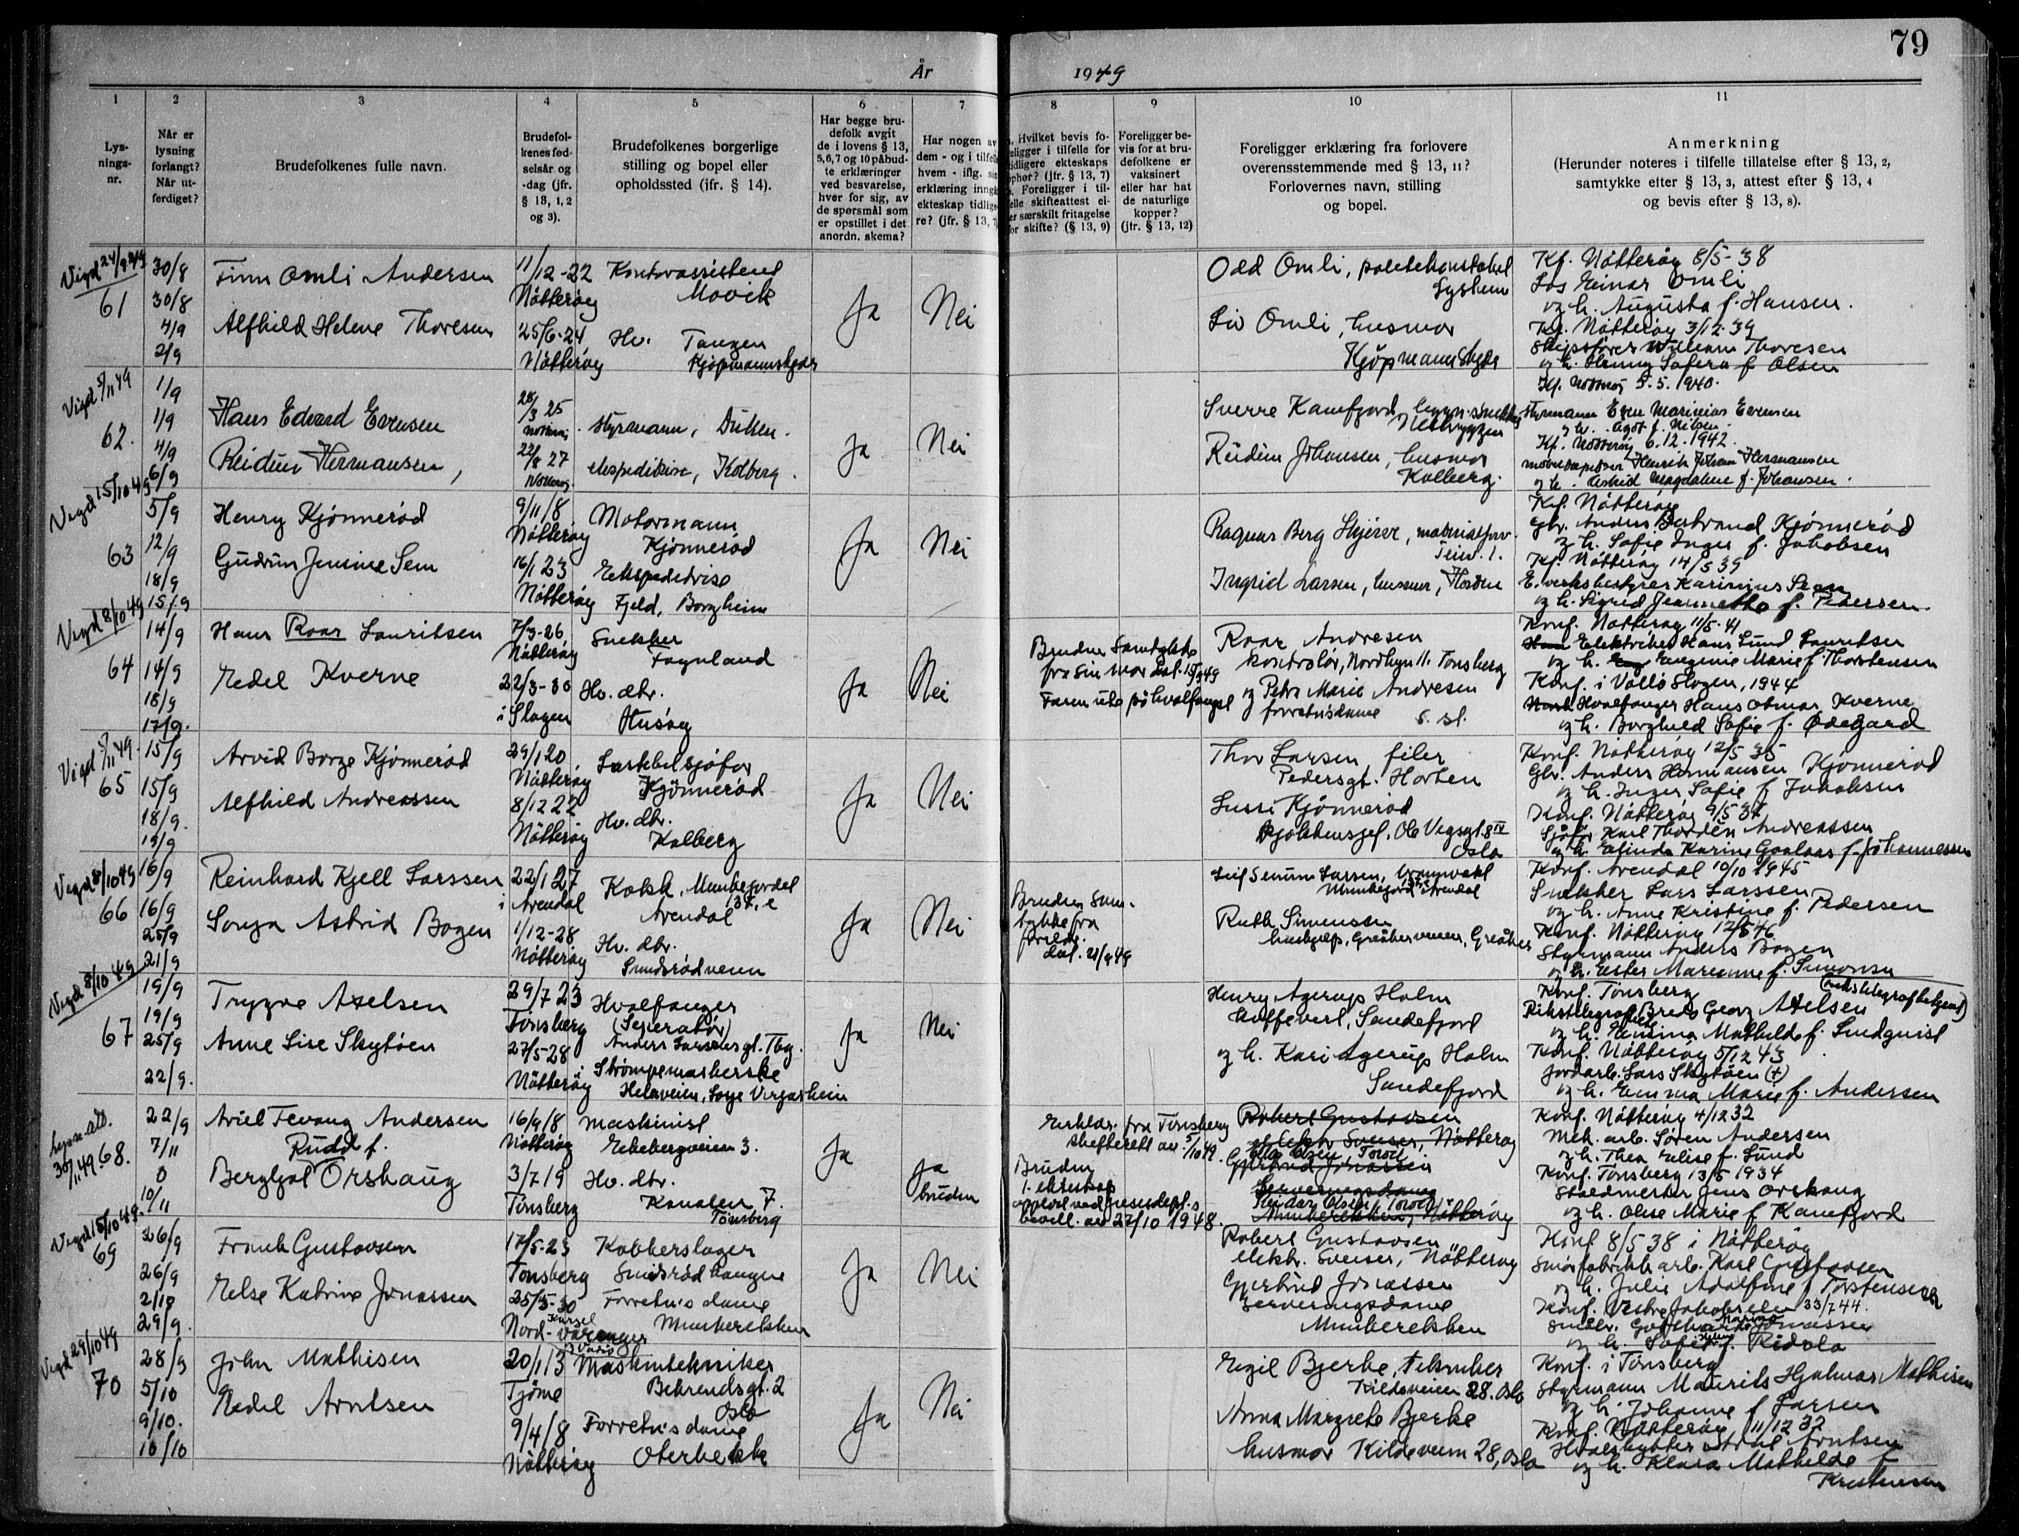 79
År 1949
1
2
3
4
5
6
7
8
9
10
11
Lys-
nings-
nr.
Når er
lysning
forlangt?
Når ut-
ferdiget?
Brudefolkenes fulle navn.
Brudefol-
kenes fød-
selsår og
-dag (jfr.
§ 13, 1, 2
og 3).
Brudefolkenes borgerlige
stilling og bopel eller
opholdssted (jfr. § 14).
Har begge bru-
defolk avgit
de i lovens § 13,
5,6,7 og 10 påbud-
te erklæringer
ved besvarelse,
hver for sig, av
de spørsmål som
er opstillet i det
anordn. skema?
Har nogen av
dem - og i tilfelle
hvem - iflg. sin
erklæring inngått
ekteskap tidlige-
re? (jfr. § 13,
Hvilket bevis fo-
religger i tilfelle for
tidligere ekteskaps
ophør? (jfr. § 13, 7)
Foreligger i til-
felle skifteattest el-
ler særskilt fritagelse
for skifte? (§ 13, 9)
Foreligger be-
vis for at bru-
defolkene er
vaksinert
eller har hat
de naturlige
kopper?
(jfr. § 13, 12)
Foreligger erklæring fra forlovere
overensstemmende med § 13, 11?
Forlovernes navn, stilling
og bopel.
Anmerkning
(Herunder noteres i tilfelle tillatelse efter § 13, 2,
samtykke efter § 13, 3, attest efter § 13, 4
og bevis efter § 13, 8).
Vigd 24/9 49
61
30/8
30/8
4/9
2/9
Finn Omli Andersen
Alfhild Helene Thoresen
11/12-22
Nøtterøy
25/6-24
Nøtterøy
Kontorassistent
Movik
Hv. Tangen
Kjøpmannskjær
Ja
Nei
Odd Omli, politikonstabel
Liv Omli, husmor
Kf. Nøtterøy 8/5-38
Los Einar Omli
og h. Augusta f. Hansen.
Kf. Nøtterøy 3/12-39
Skipsfører William Thoresen
og h. Henny Sofera f. Olsen
Vigd 5/11 49
62.
1/9
1/9
4/9
6/9
Hans Edvard Evensen
Reidun Hermansen,
28/3 25
Nøtterøy
22/8 27
Nøtterøy
styrmann, Duken.
ekspeditrise, Kolberg.
Ja
Nei
Sverre Kanefjord,
Reidun Johansen, husmor
Kolberg.
Kf. Nøtterøy 5.5.1940.
styrmann Even Marinius Evensen
og h. Agot f. Nilsen
Kf. Nøtterøy 6.12.1942.
Henrik Johan Hermansen
og h. Astrid Magdalene f. Johansen.
Vigd 15/10 49
63
5/9
12/9
18/9
15/9
Henry Kjønnerød
Gudrun Jensine Sem
9/11/8
Nøtterøy
16/1 23
Nøtterøy
Motormann
Kjønnerød
Ekspeditrise
Fjeld, Borgheim
Ja
Nei
Ragnar Berg Skjerve, materialforv.
Ingrid Larsen, husmor, Horten
Kf. Nøtterøy
gbr. Anders Kjønnerød
og h. Sofie Inger f. Jakobsen
Kf. Nøtterøy 14/5 39
E.verksbestyrer Karinius Sem
og h. Sigrid Jeannette f. Pedersen.
Vigd 8/10 49
64
14/9
14/9
18/9
17/9.
Hans Roar Lauritsen
Edel Kverne
7/3-26
Nøtterøy
22/3-30
i Slagen
Snekker
Føynland
Hv. dtr.
Husøy
Ja
Nei
Bruden Samtykke
fra sin mor dat. 15/9 49
Faren ute på hvalfangst
Roar Andresen
kontrollør, Nordbyn 11. Tønsberg
og Petra Marie Andresen
forretn.dame s. st.
Konf. Nøtterøy 11/5-41
Elektriker Hans Lund Lauritsen
og h. Eugenie Marie f. Thorstensen
Konf. i Vallø Slagen, 1944
Hvalfanger Hans Otmar Kverne
og h. Borghild Sofie f. Ødegård
Vigd 5/11 49.
65
15/9
15/9
18/9.
19/9
Arvid Borge Kjønnerød
Alfhild Andreassen
29/1 20
Nøtterøy
8/12 22
Nøtterøy
Lastebilsjåfør
Kjønnerød
Hv. dtr.
Kolberg
Ja
Nei
Thor Larsen filer
Pedersgt. Horten
Lussi Kjønnerød
Oslo
Konf. Nøtterøy 12/5 35
Gbr. Anders Hermansen Kjønnerød
og h. Inger Sofie f. Jakobsen
Konf. Nøtterøy 9/5 37
Sjåfør Karl Thordén Andreassen
og h. Elinda Karine f. Johannessen
Vigd 8/10 49
66
16/9
16/9
25/9
21/9
Reinhard Kjell Larssen
Sonja Astrid Bogen
22/1 27
i Arendal
1/12-28
Nøtterøy
Kokk, Munkejordet
Arendal
Hv. dtr.
Smidsrødveien
Ja
Nei
Bruden Sam-
tykke fra
foreldr.
dat. 21/9 49
Leif Simun Larsen,
Ruth Simonsen
hushjelp, Greåkerveien, Greåker
Konf. Arendal 10/10 1945
Snekker Lars Larssen
og h. Anne Kristine f. Pedersen
Konf. Nøtterøy 12/5 46
Styrmann Anders Bogen
og h. Ester Marianne f. Simonsen
Vigd 8/10 49
67
19/9
19/9
25/9
22/9.
Trygve Axelsen
Anne Lise Skytøen
29/7 23
Tønsberg
27/5-28
Nøtterøy
Hvalfanger
(Separatør)
Anders Larsensgt. Tbg.
Strømpemaskerske
Helaveien, Løye Virgarheim
Ja
Nei
Henry Agerup Holm
Sandefjord
og h. Kari Agerup Holm
Sandefjord
Konf. Tønsberg
(rikstelegrafbetjent)
Georg Axelsen
og h. Mathilde f. Lindquist
Konf. Nøtterøy 5/12 43
Jordarb. Lars Skytøen (+)
og h. Emma Marie f. Andersen
30/11 49
68.
22/9
7/11
0
10/11
Ariel Tevang Andersen
Rudd f.
Bergljot Orshaug
16/9/8
Nøtterøy
3/7 19
Tønsberg
Maskinist
Ekebergveien 3.
Hv. dtr.
Kanalen 7.
Tønsberg
Ja
Ja
bruden
Erklær. fra Tønsberg
skifterett av 5/10 49.
Bruden
1. ekteskap
oppløst ved Justisdept.s
bevill. av 27/10 1948.
Robert Gustavsen
elektr. Sveiser, Nøtterøy
Gjertrud Jonassen
Serveringsdame
Munkerekken, Nøtterøy
Konf. Nøtterøy 4/12 32
Mek. arb. Søren Andersen
og h. Thea Elise f. Lund
Konf. Tønsberg 13/5 1934
Stallmester Jens Orshaug
og h. Olise Marie f. Kanefjord
Vigd 15/10 49.
69
26/9
26/9
2/10
29/9.
Frank Gustavsen
Else Katrine Jonassen
17/5-23
Tønsberg
25/5-30
Nord-Varanger
Kobberslager
Smidsrødhaugen
Forretn's dame
Munkerekken
Ja
Nei
Robert Gustavsen
elektr. Sveiser, Nøtterøy
Gjertrud Jonassen
Serveringsdame
Munkerekken
Konf 8/5 38 i Nøtterøy
Smørfabrikk arb. Karl Gustavsen
og h. Julie Adolfine f. Torstensen
og h. Sofie f. Ridola
Vigd 29/10 49
70
28/9
5/10
9/10.
10/10
John Mathisen
Nedel Arntsen
20/1/3
Tjøme
9/4/8
Nøtterøy
Maskintekniker
Behrendsgt. 2
Oslo
Forretn's dame
Oterbekk
Ja
Nei
Eigil Bjerke, tekniker
Kildeveien 28. Oslo
Anna Margrete Bjerke
husmor Kildeveien 28, Oslo
Konf. i Tønsberg
Styrmann Maurits Hjalmar Mathisen
og h. Johanne f. Larsen
Konf. Nøtterøy 11/12 32
Hvalskytter Arntsen
og h. Klara Mathilde f.
Kristensen